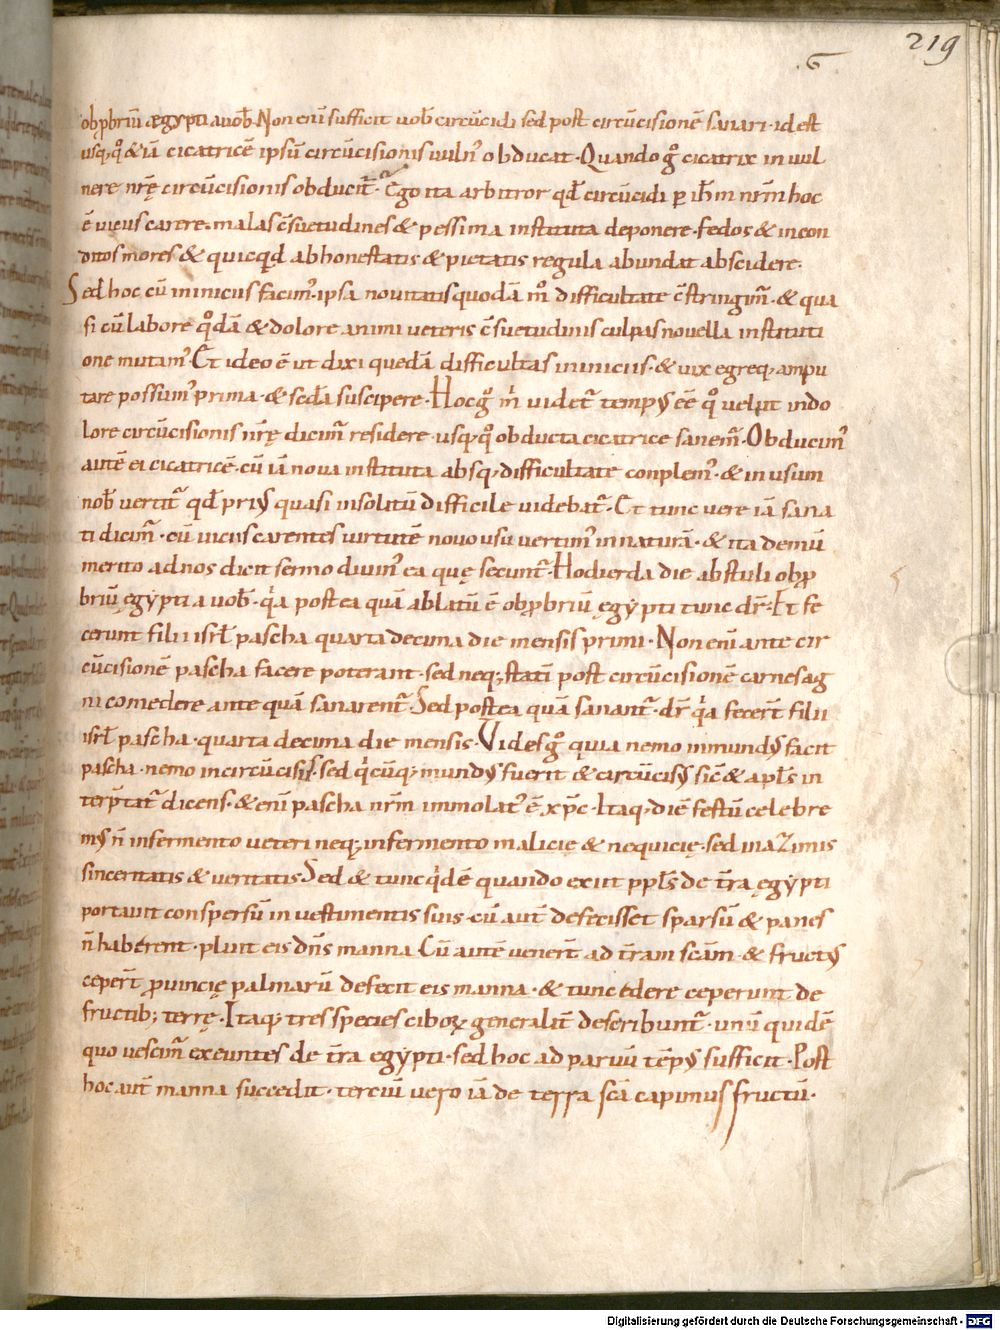 219
G
obp̱briū ægypti auob̄. Non eni sufficit uob̄ circūcidi sed post circūcisionē sanari. id est
usq; q̊ & iā cicatricē ipsū circūcisionis uuln᷒ obducat. Quando gͦ cicatrix in uul
nere nr̄ę circūcisionis obducit̄. Ego ita arbitror qd̄ circūcidi ꝑ ih̄m nr̄m hoc
ē uiciis carere. malas c̄suetudines & pessima instituta deponere. fedos & incon
ditos mores & quicqd abhonestatis & pietatis regula abundat abscidere.
Sed hoc cū in iniciis facim᷒. ipsa nouitatis quodā m̊ difficultate c̄stringim̄. & qua
si cū labore q̊dā & dolore animi ueteris c̄suetudinis culpas nouella instituti
one mutam᷒. Et ideo ē ut dixi quedā difficultas in iniciis. & uix egreq; ampu
tare possum᷒ prima. & secd̄a suscipere. Hoc gͦ m̍ uidet̄ temp᷒ ēē q̊ uelut in do
lore circūcisionis nr̄ę dicim̄ residere. usq; q̊ obducta cicatrice sanem̄. Obducim᷒
autē ei cicatricē. cū iā noua instituta absq; difficultate conplem᷒. & in usum
nob̄ uertit̄ qd̄ pri᷒ quasi insolitū difficile uidebat̄. Et tunc uere iā sana
ti dicim̄. cū uiciis carentes uirtutē nouo usu uertim᷒ in naturā. & ita demū
merito ad nos dicit sermo diuin᷒ ea quę secunt̄. Hodierda die abstuli obꝓ
briū ęgypti a uob̄. q̍a postea quā ablatū ē obp̱briū ęgypti tunc dr̄. Et fe
cerunt filii isrl̄ pascha quarta decima die mensis primi. Non eni ante cir
cūcisionē pascha facere poterant. sed neq; stati post circūcisionē carnes ag
ni comedere ante quā sanarent̄. Sed postea quā sanant̄. dr̄ q̍a fecer̄t filii
isrl̄ pascha. quarta decima die mensis. Vides gͦ quia nemo inmund᷒ facit
pascha. nemo incircūcis᷒. sed q̍cūq; mund᷒ fuerit & circūcis᷒ sic̄ & apl̄s in
terp̄tat̄ dicens. & eni pascha nr̄m immolat᷒ ē xp̄c. Itaq; diē festū celebre
m᷒ n̄ in fermento ueteri neq; in fermento malicię & nequicię. sed in azimis
sinceritatis & ueritatis. Sed & tunc q̍dē quando exiit ppl̄s de t̄ra ęgypti
portauit conspersū in uestimentis suis. cū aut̄ defecisset sparsū & panes
n̄ haberent. pluit eis dn̄s manna. Cū autē uener̄t ad t̄ram scām. & fruct᷒
ceper̄t ꝓuincię palmarū defecit eis manna. & tunc edere ceperunt de
fructib; terrę. Itaq; tres species ciboꝝ generalit̄ describunt̄. unū quidē
quo uescim̄ exeuntes de t̄ra egypti. sed hoc ad paruū tēp᷒ sufficit. Post
hoc aut̄ manna succedit. terciū uero iā de terra scā capimus fructū.
Digitalisierung gefördert durch die Deutsche Forschungsgemeinschaft - DFG